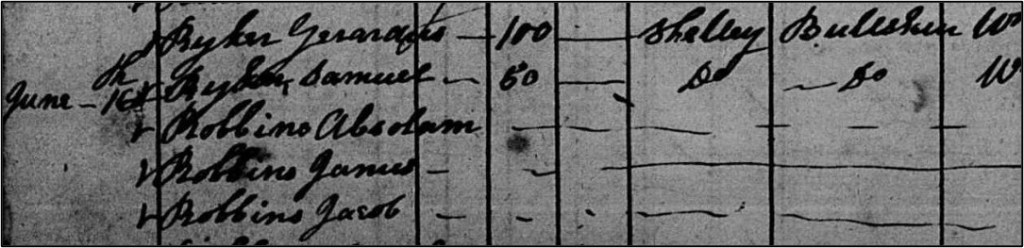 Ryker Gerardus — 100 — Shelley Bullskin
June 16th Ryker, Samuel — 50 — Do — Do W
Robbins Absolam
Robbins James
Robbins Jacob